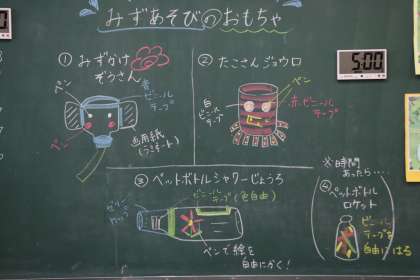 みずあそびのおもちゃ
① みずかけ
ぞうさん
ペン
青
ビニール
テープ
ペン
画用紙
② たこさんジョウロ
ペン
白
ビニール
テープ
赤ビニール
テープ
5:00
③ ペットボトルシャワーじょうろ
ビニール
テープ(色自由)
ペンで絵を
自由にかく!
※時間
あったら....
④ ペットボトル
ロケット
ビニール
テープを
自由にはる